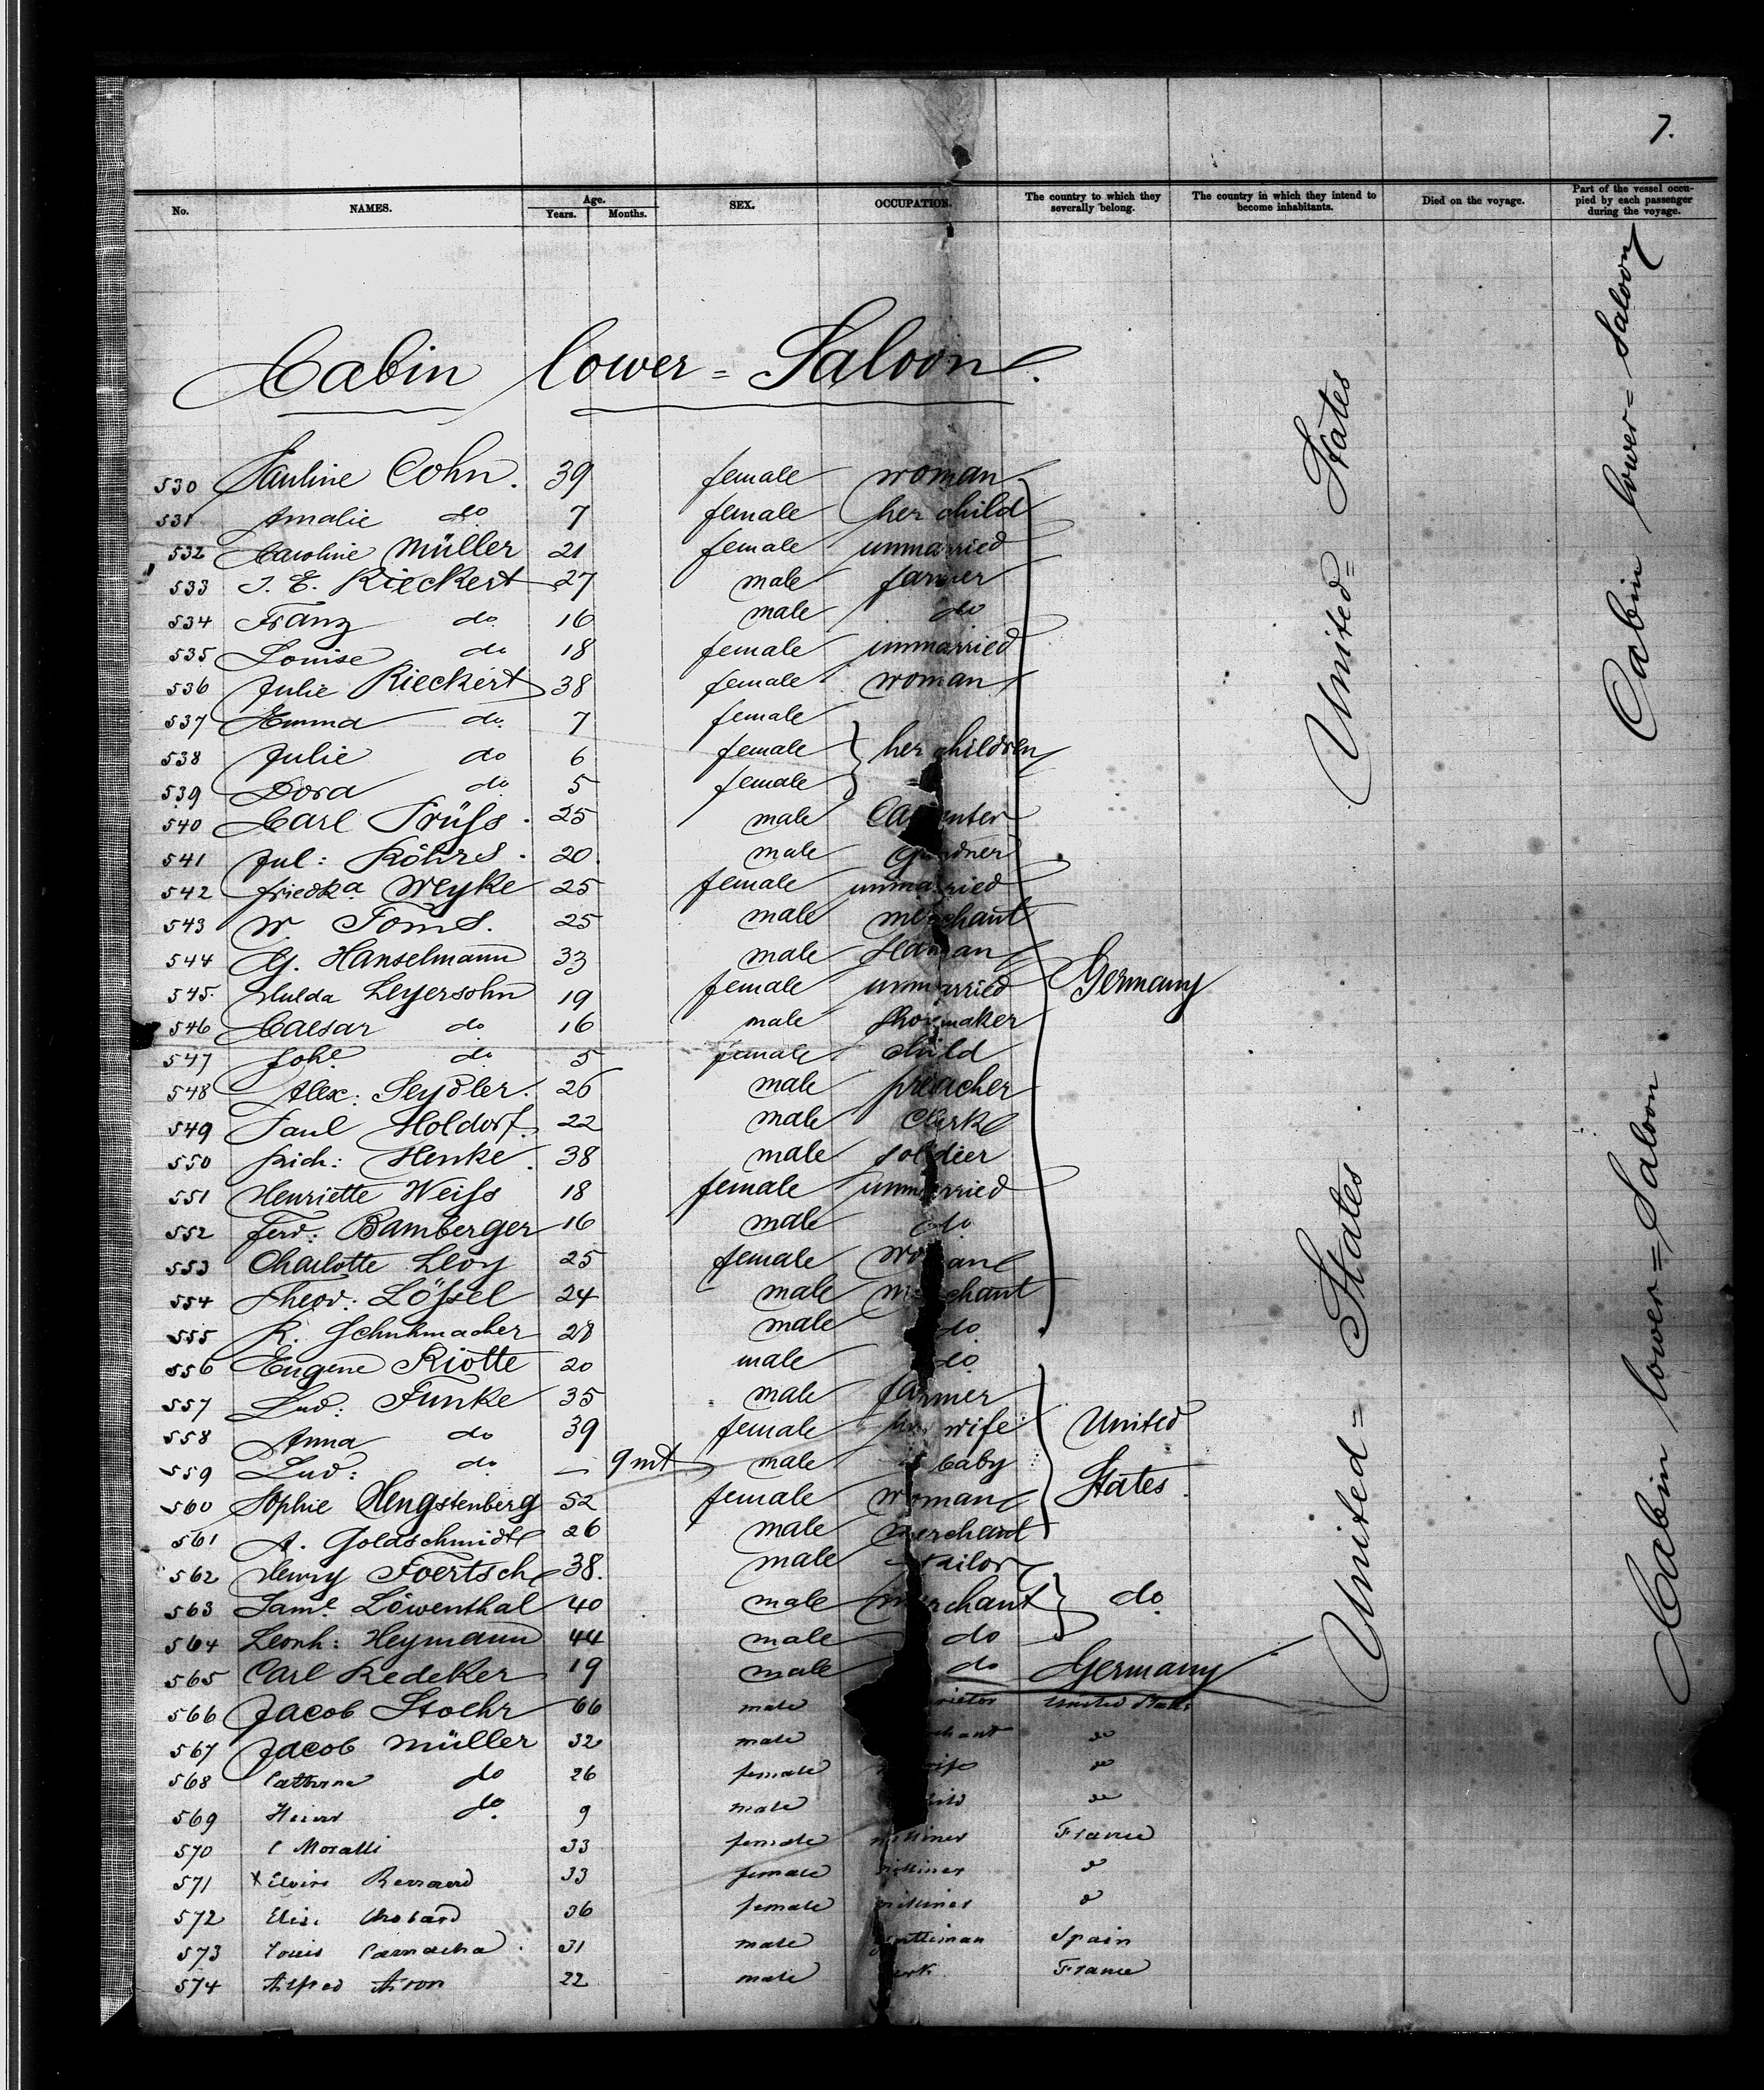 7.
No. NAMES. Age. Years. Months. SEX. OCCUPATION. The country to which they severally belong. The country in which they intend to become inhabitants. Died on the voyage. Part of the vessel occupied by each passenger during the voyage.
Cabin lower = Saloon.
530 Pauline Cohn. 39 female woman
531 Amalie do 7 female her child
532 Caroline Müller 21 female unmarried
533 J. E. Rieckert 27 male farmer
534 Franz do 16 male do
535 Louise do 18 female unmarried
536 Julie Rieckert 38 female woman
537 Emma do 7 female
538 Julie do 6 female her children
539 Dora do 5 female
540 Carl Früss 25 male Carpenter
541 Jul: Röhrs 20 male gardner
542 Friedka Weyke 25 female unmarried
543 W. Toms. 25 male merchant
544 G. Hanselmann 33 male seaman
545 Hulda Leyersohn 19 female unmarried Germany
546 Caesar do 16 male shoemaker
547 Johe do 5 female child
548 Alex: Seydler. 26 male preacher
549 Paul Holdorf. 22 male Clerk
550 Rich: Henke. 38 male soldier
551 Henriette Weiss 18 female unmarried
552 Ferd: Bamberger 16 male do
553 Charlotte Levy 25 female woman
554 Theod: Lössel 24 male merchant
555 R. Schuhmacher 28 male do
556 Eugene Riotte 20 male do
557 Lud: Funke 35 male farmer
558 Anna do 39 female his wife United
559 Lud: do — 9 mt male baby
560 Sophie Hengstenberg 52 female woman States
561 A. Goldschmidt 26 male merchant
562 Henry Foertsch 38. male tailor
563 Saml. Löwenthal 40 male merchant do
564 Leonh: Heymann 44 male do
565 Carl Redeker 19 male do Germany
566 Jacob Stoehr 66 male United States
567 Jacob Müller 32 male do
568 Catherine do 26 female wife do
569 do 9 male child do
570 C Moralli 33 female milliner France
571 x 33 female milliner d
572 Elise 36 female milliner d
573 Louis 31 male gentleman Spain
574 Alfred Aron 22 male clerk France
United = States
United = States
Cabin lower = Saloon
Cabin lower = Saloon